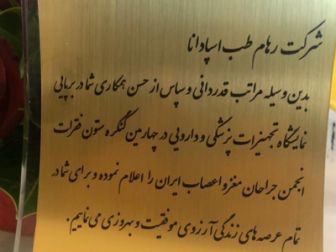 شرکت رهام طب اسپادانا
بدین وسیله مراتب قدردانی و سپاس از حسن همکاری شما در برپایی
نمایشگاه تجهیزات پزشکی و دارویی در چهارمین کنگره ستون فقرات
انجمن جراحان مغز و اعصاب ایران را اعلام نموده و برای شما در
تمام عرصه های زندگی آرزوی موفقیت و بهروزی می نماییم.